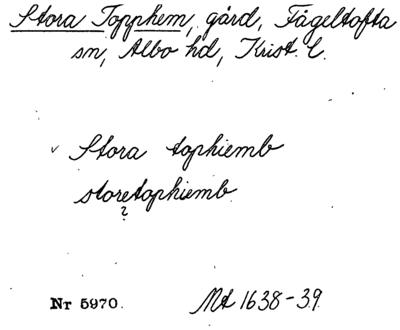 Stora Topphem, gård, Fågeltofta
sn, Albo hd, Krist. l.
v Stora tophiemb
storetophiemb
?
Nr 5970. Mt 1638-39.